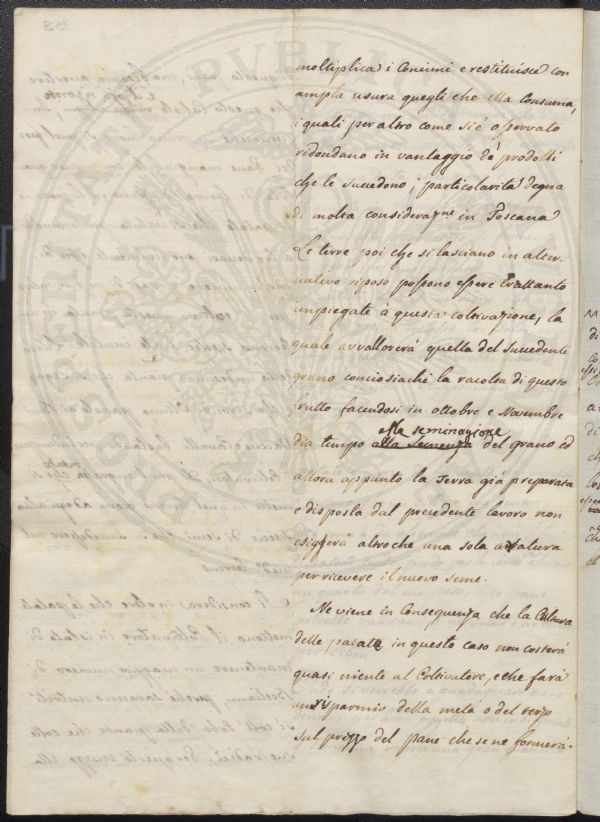 moltiplica i Concimi e restituisce con
ampla usura quegli che ella Consuma,
i quali per altro come si è osservato
ridondano in vantaggio de' prodotti
che le succedono; particolarità degna
di molta considerazne in Toscana
Le terre poi che si lasciano in alter-
nativo riposo possono essere trattanto
impiegate à questa coltivazione, la
quale avvallorerà quella del Succedente
grano conciosiachè la racolta di questo
frutto facendosi in ottobre e Novembre
alla seminagione
dia tempo alla Semenza del grano ed
allora appunto la Terra già preparata
e disposta dal precedente lavoro non
esiggerà altro che una sola aratura
per ricevere il nuovo seme.
Ne viene in Conseguenza che la Coltura
delle patate in questo caso non costerà
quasi niente al Coltivatore, e che farà
un risparmio della metà o del terzo
sul prezzo del pane che se ne formerà.